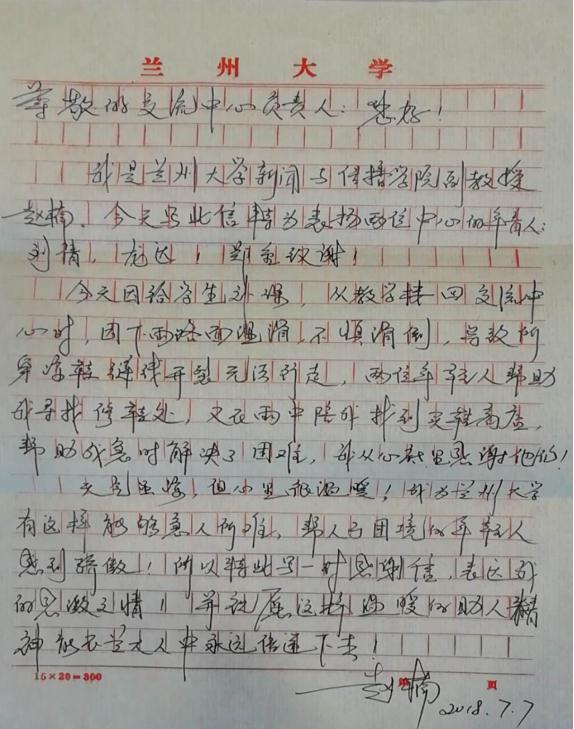 兰州大学
尊敬的交流中心负责人：您好！
我是兰州大学新闻与传播学院副教授
赵楠，今天写此信特为表扬两位中心的年青人：
刘倩，彪达！郑重致谢！
今天因给学生补课，从教学楼回交流中
心时，因下雨路面湿滑，不慎滑倒，导致所
穿凉鞋鞋线开裂无法行走，两位年轻人帮助
我寻找修鞋处，又在雨中陪我找到卖鞋商店，
帮助我急时解决了困难，我从心底里感谢他们！
天气虽，但心里很温暖！我为兰州大学
有这样能够急人所难，帮人与困境的年轻人
感到骄傲！所以特此写一封感谢信，表达我
的感激之情！并祝愿这样温暖的助人精
神能在兰大人中永远传递下去！
赵楠
2018.7.7
15×20=300
第 页